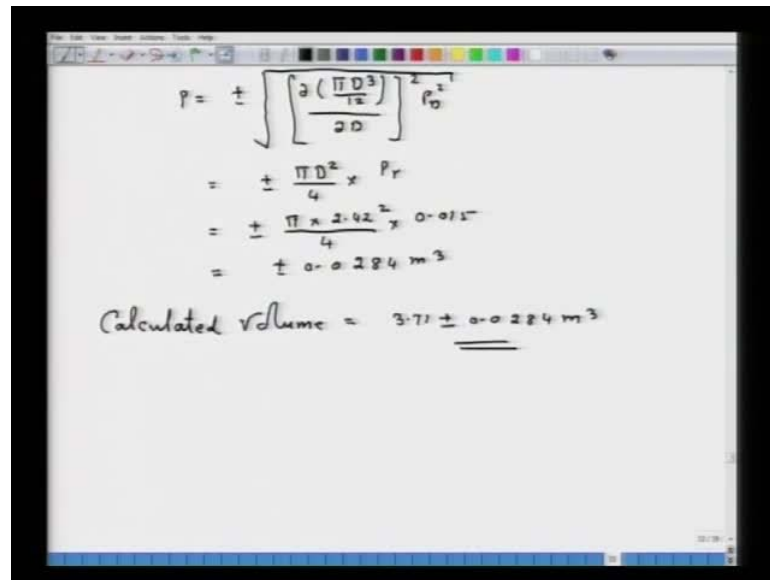 File Edit View Insert Actions Tools Help
P = ± √( [ 2 ( πD³/12 ) / 2D ]² P_D² )
= ± πD²/4 × Pr
= ± π × 2.42²/4 × 0.015
= ± 0.0284 m³
Calculated Volume = 3.71 ± 0.0284 m³